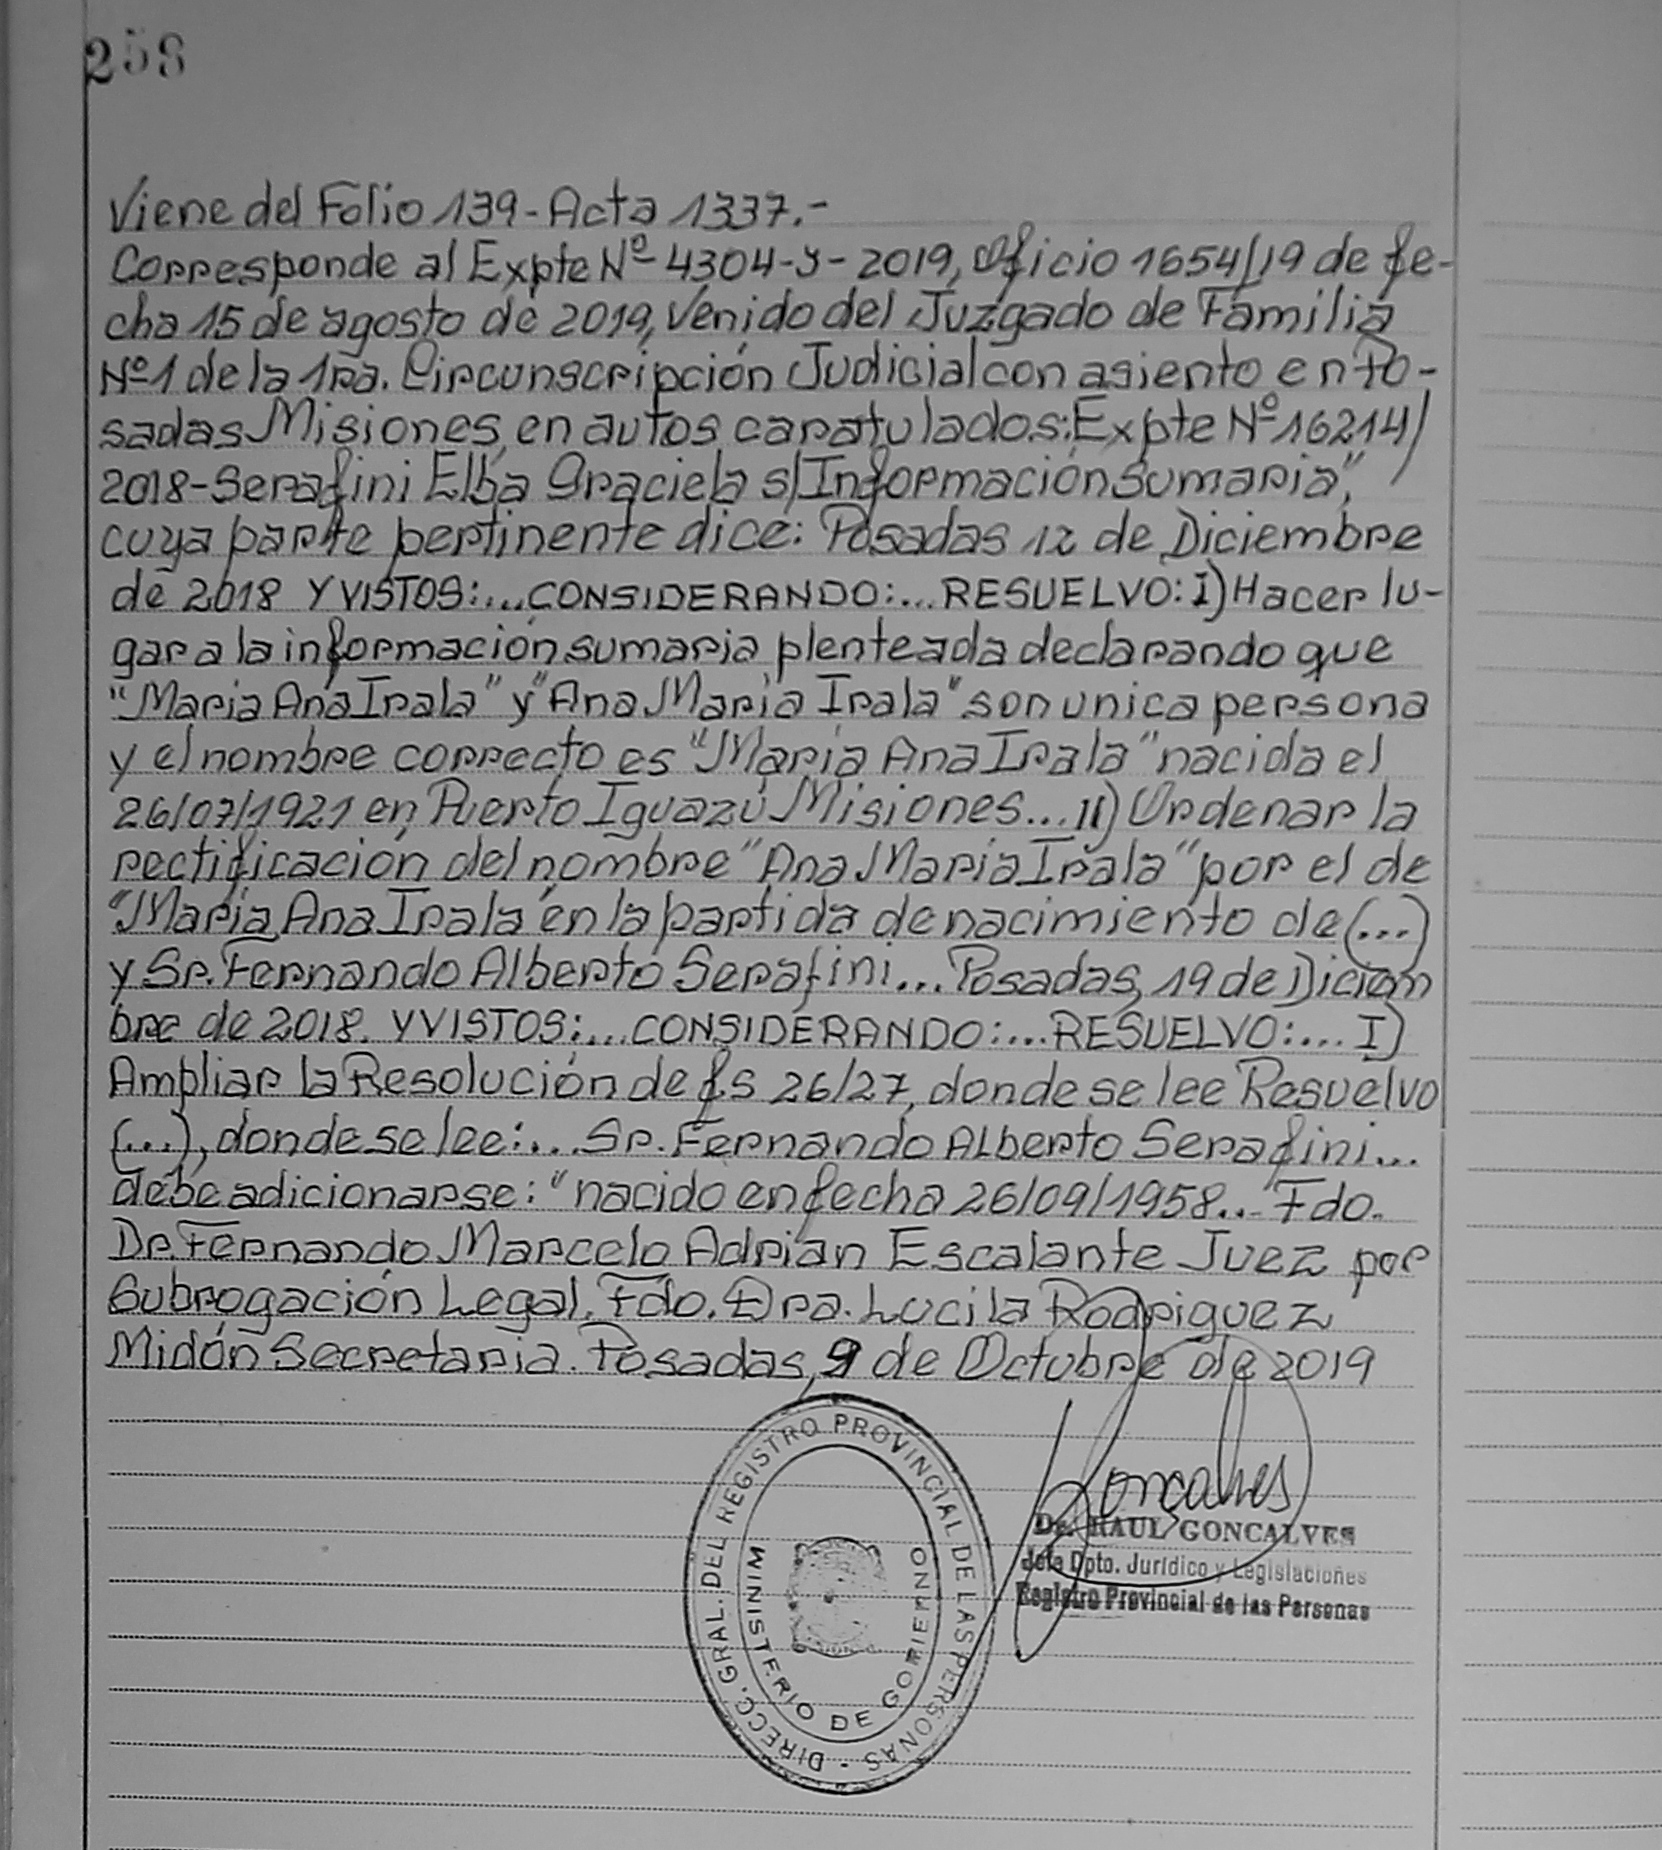 258
Viene del Folio 139-Acta 1337.-
Corresponde al Expte Nº 4304-y-2019, Oficio 1654/19 de fe-
cha 15 de agosto de 2019, Venido del Juzgado de Familia
Nº1 de la 1ra. Circunscripción Judicial con asiento en Po-
sadas Misiones, en autos caratulados: Expte Nº 16214/
2018-Serafini Elba Graciela s/Información Sumaria",
cuya parte pertinente dice: Posadas 12 de Diciembre
de 2018 Y VISTOS:...CONSIDERANDO:...RESUELVO: I) Hacer lu-
gar a la información sumaria plenteada declarando que
"Maria Ana Irala" y "Ana Maria Irala" son unica persona
y el nombre correcto es "Maria Ana Irala" nacida el
26/07/1921 en Puerto Iguazú Misiones... II) Ordenar la
rectificación del nombre "Ana Maria Irala" por el de
"Maria Ana Irala" en la partida de nacimiento de (...)
y Sr. Fernando Alberto Serafini... Posadas, 19 de Diciem
bre de 2018. Y VISTOS:...CONSIDERANDO:...RESUELVO:.... I)
Ampliar la Resolución de fs 26/27, donde se lee Resuelvo
(...), donde se lee:...Sr. Fernando Alberto Serafini...
debe adicionarse: "nacido en fecha 26/09/1958..." Fdo.
Dr. Fernando Marcelo Adrian Escalante Juez por
Subrogación Legal. Fdo. Dra. Lucila Rodriguez
Midón Secretaria. Posadas, 9 de Octubre de 2019
DIRECC. GRAL. DEL REGISTRO PROVINCIAL DE LAS PERSONAS -
MINISTERIO DE GOBIERNO
Goncalves
Dr. RAUL GONCALVES
Jefe Dpto. Jurídico y Legislaciones
Registro Provincial de las Personas